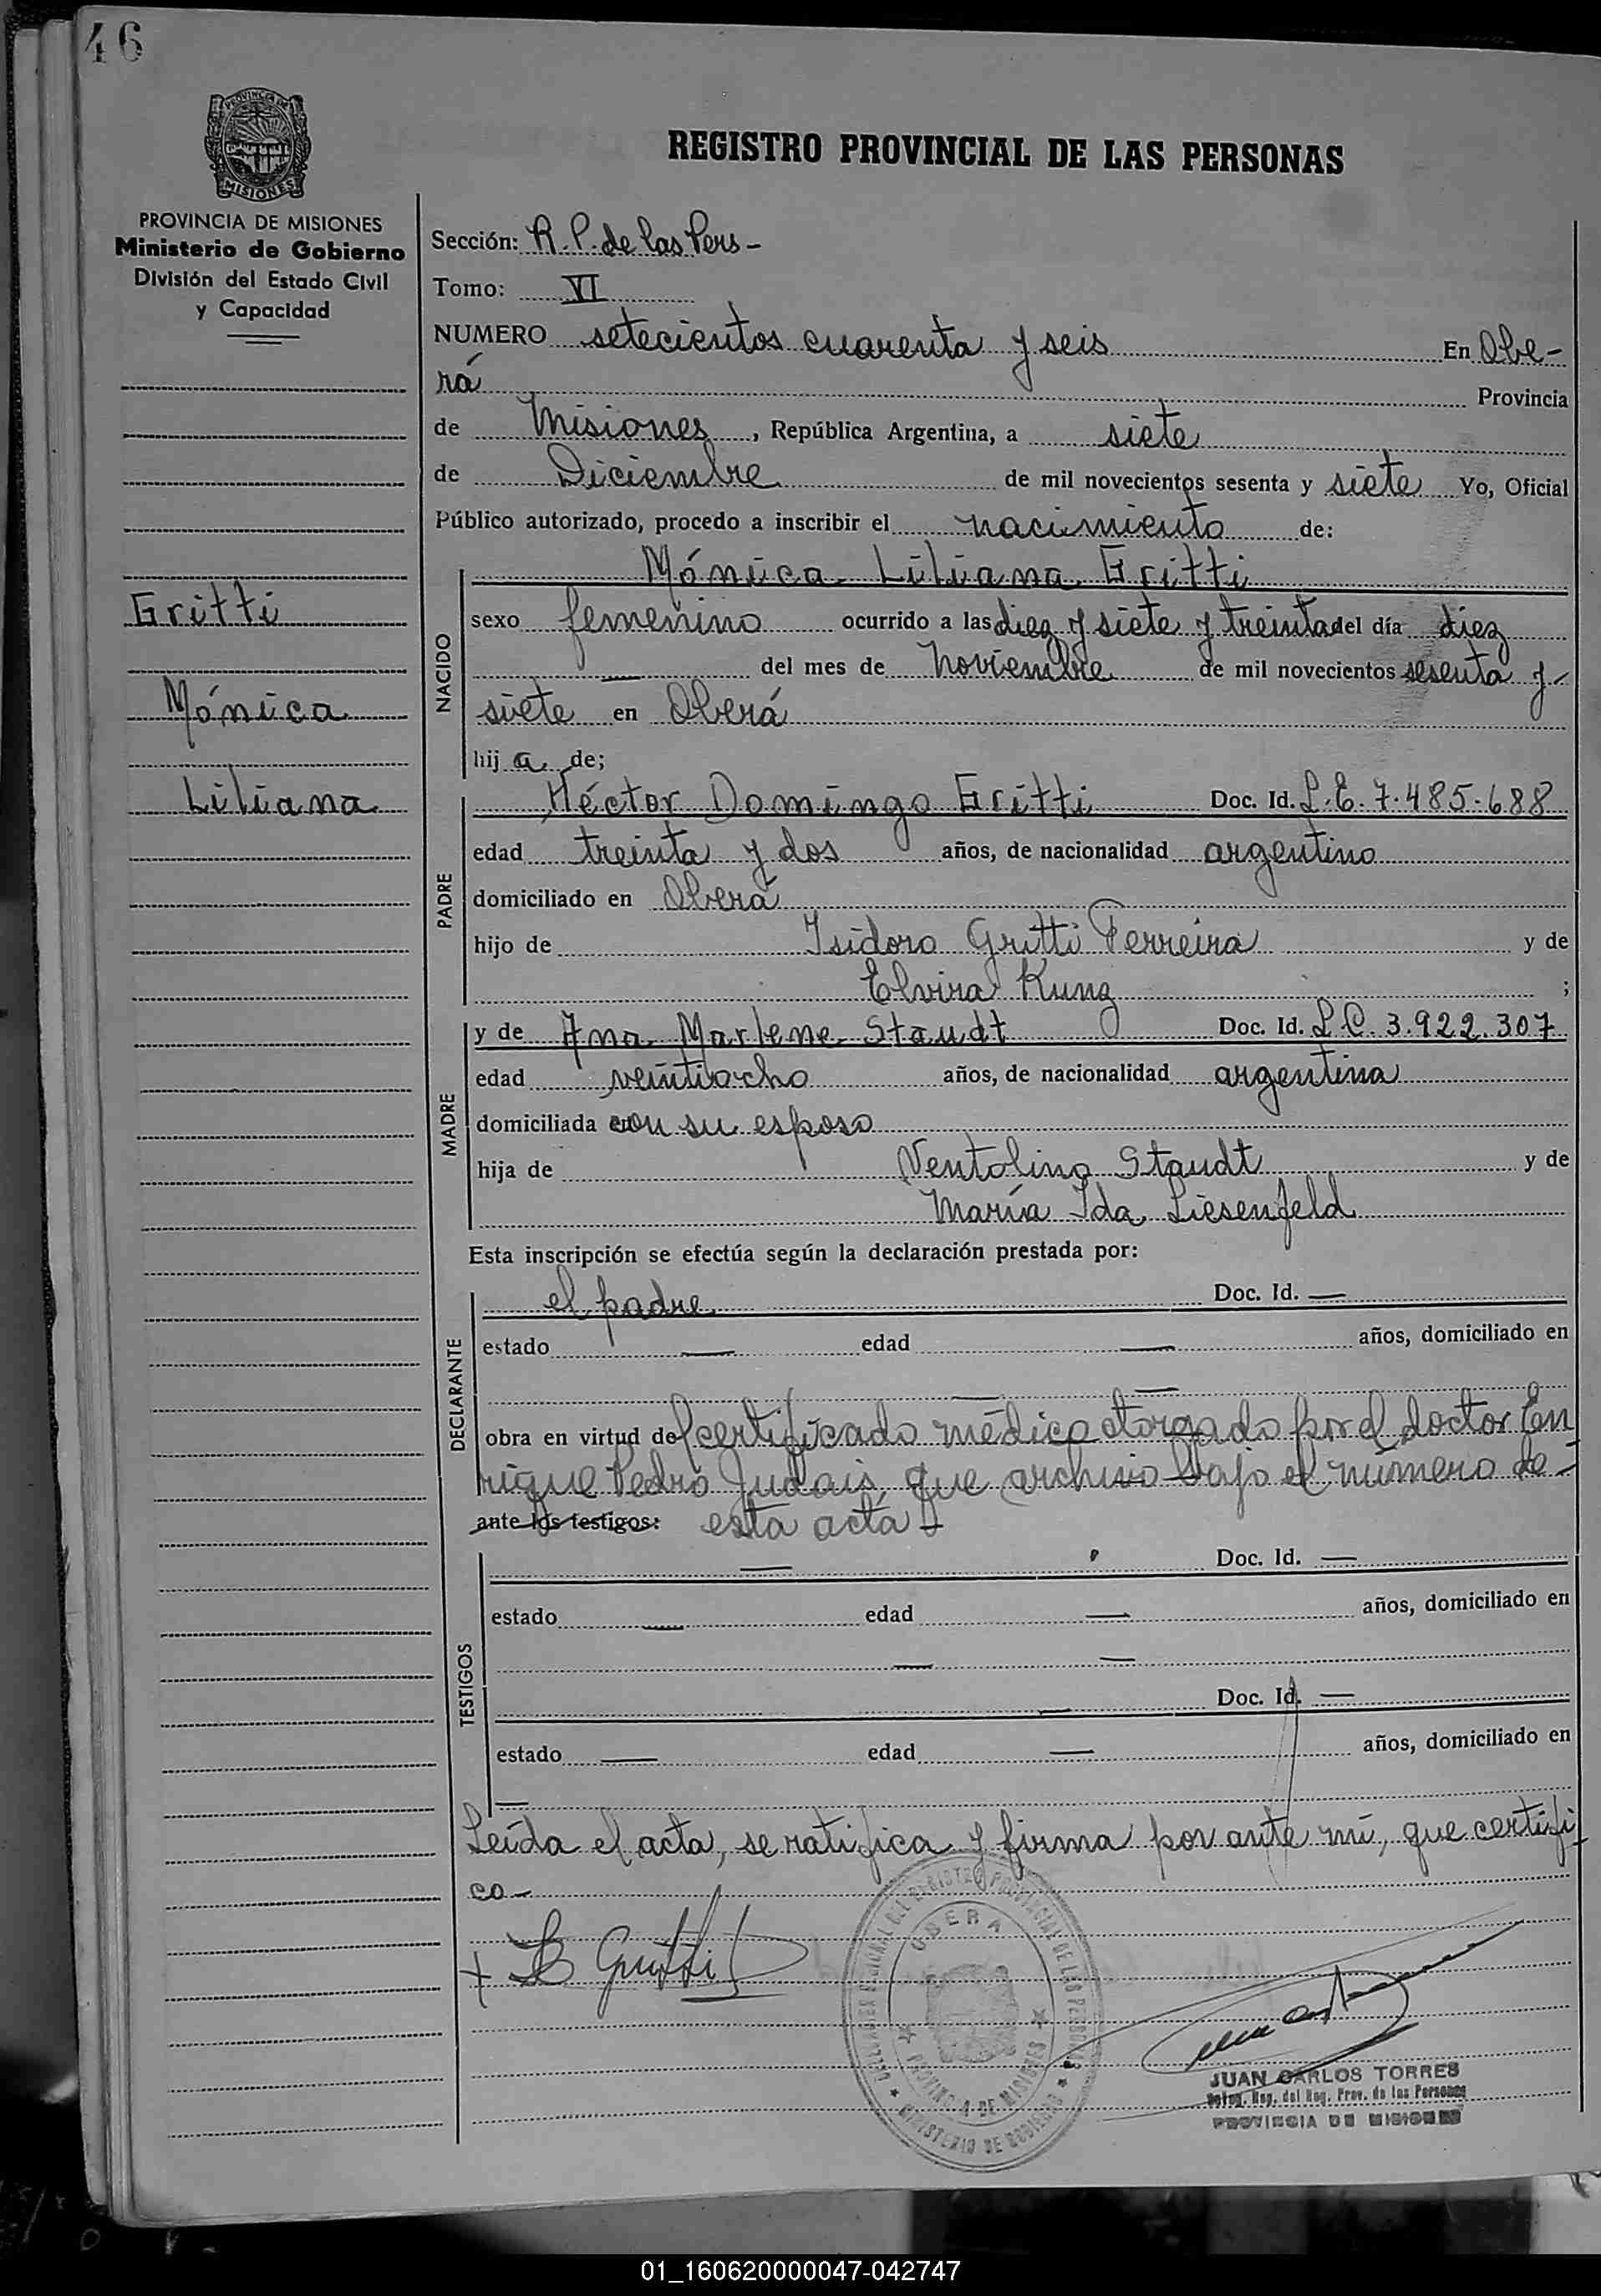 46
PROVINCIA DE
MISIONES
PROVINCIA DE MISIONES
Ministerio de Gobierno
División del Estado Civil
y Capacidad
Gritti
Mónica
Liliana
REGISTRO PROVINCIAL DE LAS PERSONAS
Sección: R. P. de las Pers -
Tomo: VI
NUMERO setecientos cuarenta y seis En Obe-
rá Provincia
de Misiones, República Argentina, a siete
de Diciembre de mil novecientos sesenta y siete Yo, Oficial
Público autorizado, procedo a inscribir el nacimiento de:
Mónica Liliana Gritti
NACIDO
sexo femenino ocurrido a las diez y siete y treinta del día diez
— del mes de Noviembre de mil novecientos sesenta y-
siete en Oberá
hija de;
PADRE
Héctor Domingo Gritti Doc. Id. L.E. 7.485.688
edad treinta y dos años, de nacionalidad argentino
domiciliado en Oberá
hijo de Isidoro Gritti Ferreira y de
Elvira Kunz ;
MADRE
y de Ana Marlene Staudt Doc. Id. L.C. 3.922.307
edad veintiocho años, de nacionalidad argentina
domiciliada con su esposo
hija de Ventolino Staudt y de
María Ida Liesenfeld
Esta inscripción se efectúa según la declaración prestada por:
DECLARANTE
el padre Doc. Id. —
estado — edad — años, domiciliado en
— —
obra en virtud del certificado médico otorgado por el doctor En
rique Pedro que archivo bajo el número de-
ante los testigos: esta acta-
TESTIGOS
— Doc. Id. —
estado — edad — años, domiciliado en
— —
— Doc. Id. —
estado — edad — años, domiciliado en
—
Leída el acta, se ratifica y firma por ante mí, que certifi
co-
+ Gritti
DEL REGISTRO PROVINCIAL DE LAS PERSONAS
OBERA
PROVINCIA DE MISIONES
MINISTERIO DE GOBIERNO
JUAN CARLOS TORRES
Deleg. Reg. del Reg. Prov. de las Personas
PROVINCIA DE MISIONES
01_160620000047-042747